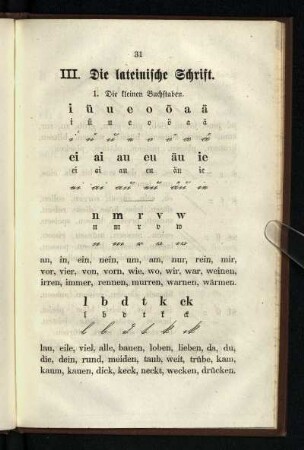 31
III. Die lateinische Schrift.
1. Die kleinen Buchstaben.
i ü u e o ö a ä
i ü u e o ö a ä
i ü u e o ö a ä
ei ai au eu äu ie
ei ai au eu äu ie
ei ai au eu äu ie
n m r v w
n m r v w
n m r v w
an, in, ein, nein, um, am, nur, rein, mir,
vor, vier, von, vorn, wie, wo, wir, war, weinen,
irren, immer, rennen, murren, warnen, wärmen.
l b d t k ck
l b d t k ck
l b d t k ck
lau, eile, viel, alle, bauen, loben, lieben, da, du,
die, dein, rund, meiden, taub, weit, trübe, kam,
kaum, kauen, dick, keck, neckt, wecken, drücken.